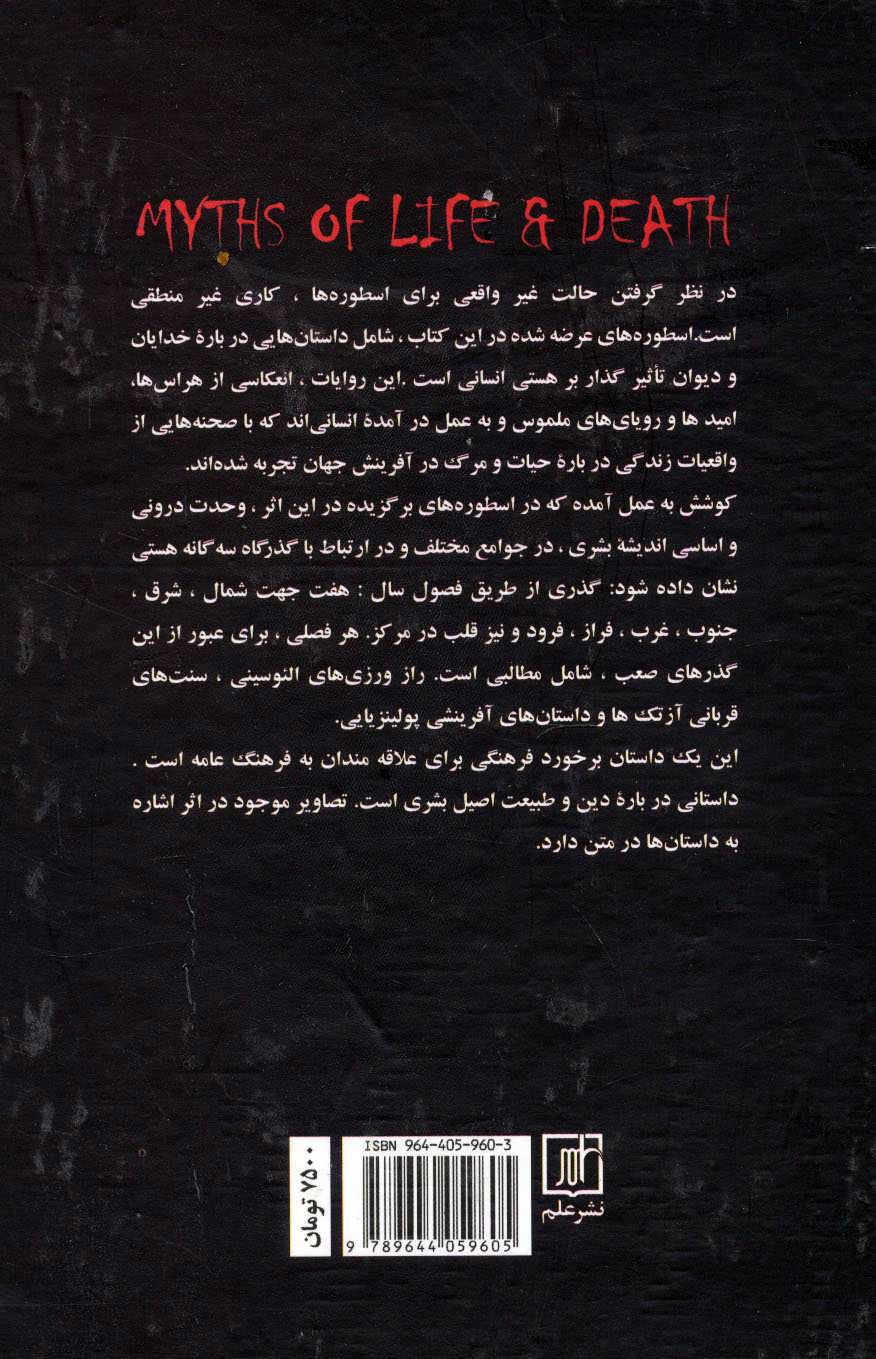 MYTHS OF LIFE & DEATH
در نظر گرفتن حالت غیر واقعی برای اسطوره‌ها ، کاری غیر منطقی
است.اسطوره‌های عرضه شده در این کتاب ، شامل داستان‌هایی در بارۀ خدایان
و دیوان تأثیر گذار بر هستی انسانی است .این روایات ، انعکاسی از هراس‌ها،
امید ها و رویای‌های ملموس و به عمل در آمدۀ انسانی‌اند که با صحنه‌هایی از
واقعیات زندگی در بارۀ حیات و مرگ در آفرینش جهان تجربه شده‌اند.
کوشش به عمل آمده که در اسطوره‌های برگزیده در این اثر ، وحدت درونی
و اساسی اندیشۀ بشری ، در جوامع مختلف و در ارتباط با گذرگاه سه گانه هستی
نشان داده شود: گذری از طریق فصول سال : هفت جهت شمال ، شرق ،
جنوب ، غرب ، فراز ، فرود و نیز قلب در مرکز. هر فصلی ، برای عبور از این
گذرهای صعب ، شامل مطالبی است. راز ورزی‌های الئوسینی ، سنت‌های
قربانی آزتک ها و داستان‌های آفرینشی پولینزیایی.
این یک داستان برخورد فرهنگی برای علاقه مندان به فرهنگ عامه است .
داستانی در بارۀ دین و طبیعت اصیل بشری است. تصاویر موجود در اثر اشاره
به داستان‌ها در متن دارد.
ISBN 964-405-960-3
9 789644 059605
۷۵۰۰ تومان
نشر علم